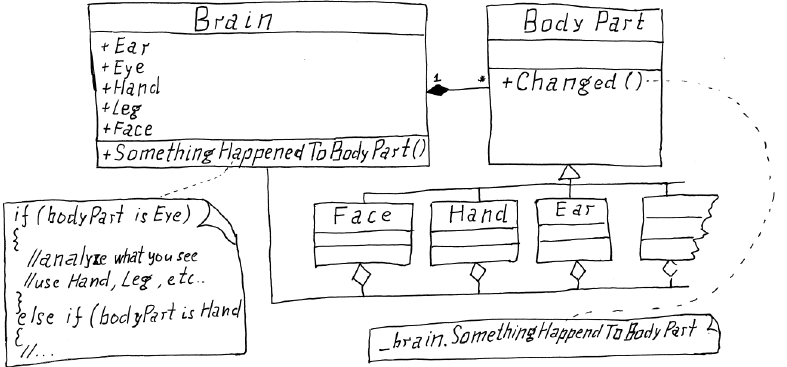 Brain
+Ear
+Eye
+Hand
+Leg
+Face
+SomethingHappenedToBodyPart()
1
*
Body Part
+Changed()
Face
Hand
Ear
if (bodyPart is Eye)
{
//analyze what you see
//use Hand, Leg, etc..
}
else if (bodyPart is Hand
{
//...
_brain.SomethingHappendToBodyPart